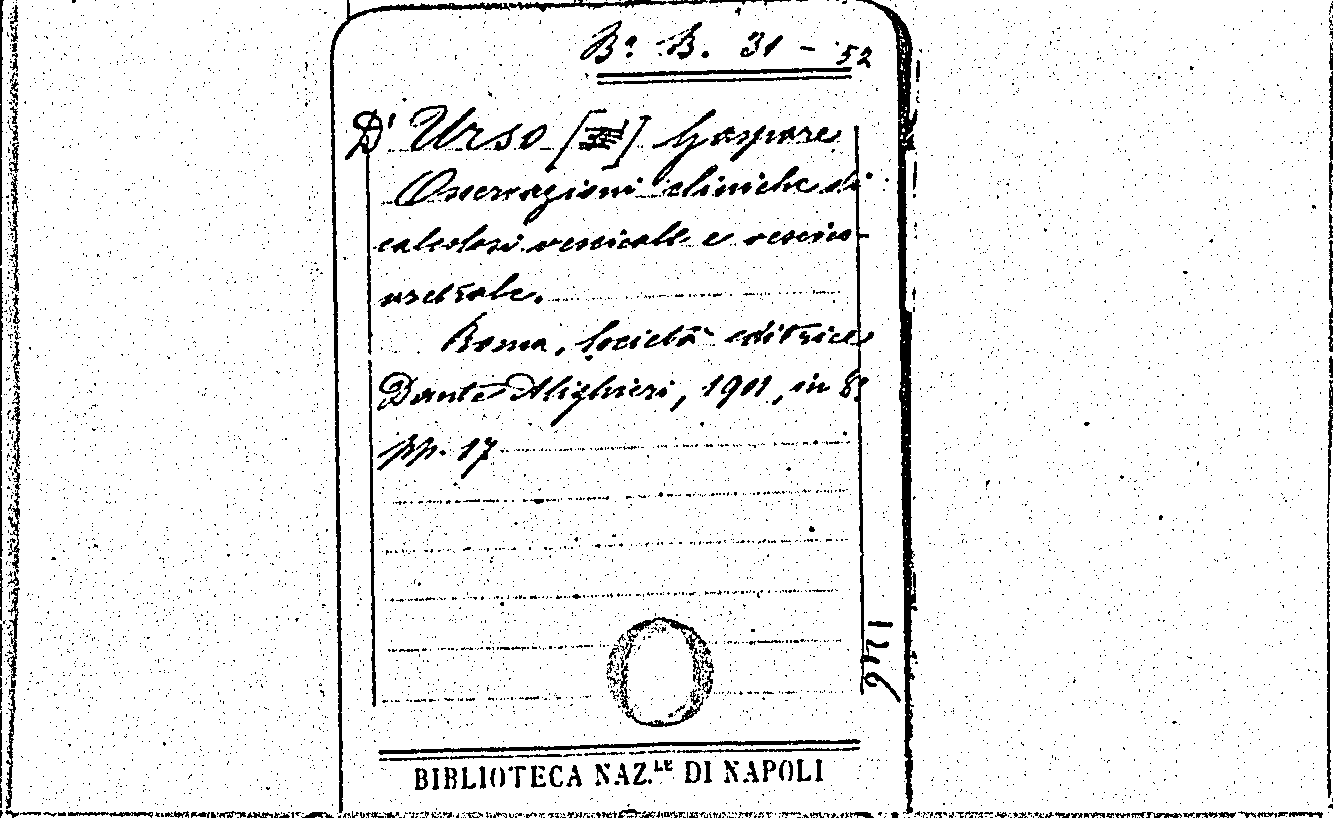 Bª B. 31 - 52
D'Urso [ ] Gaspare
Osservazioni cliniche di
calcolosi vescicale e vescico-
uretrale.
Roma, Società editrice
Dante Alighieri, 1901, in 8º
pp. 17
BIBLIOTECA NAZ.LE DI NAPOLI